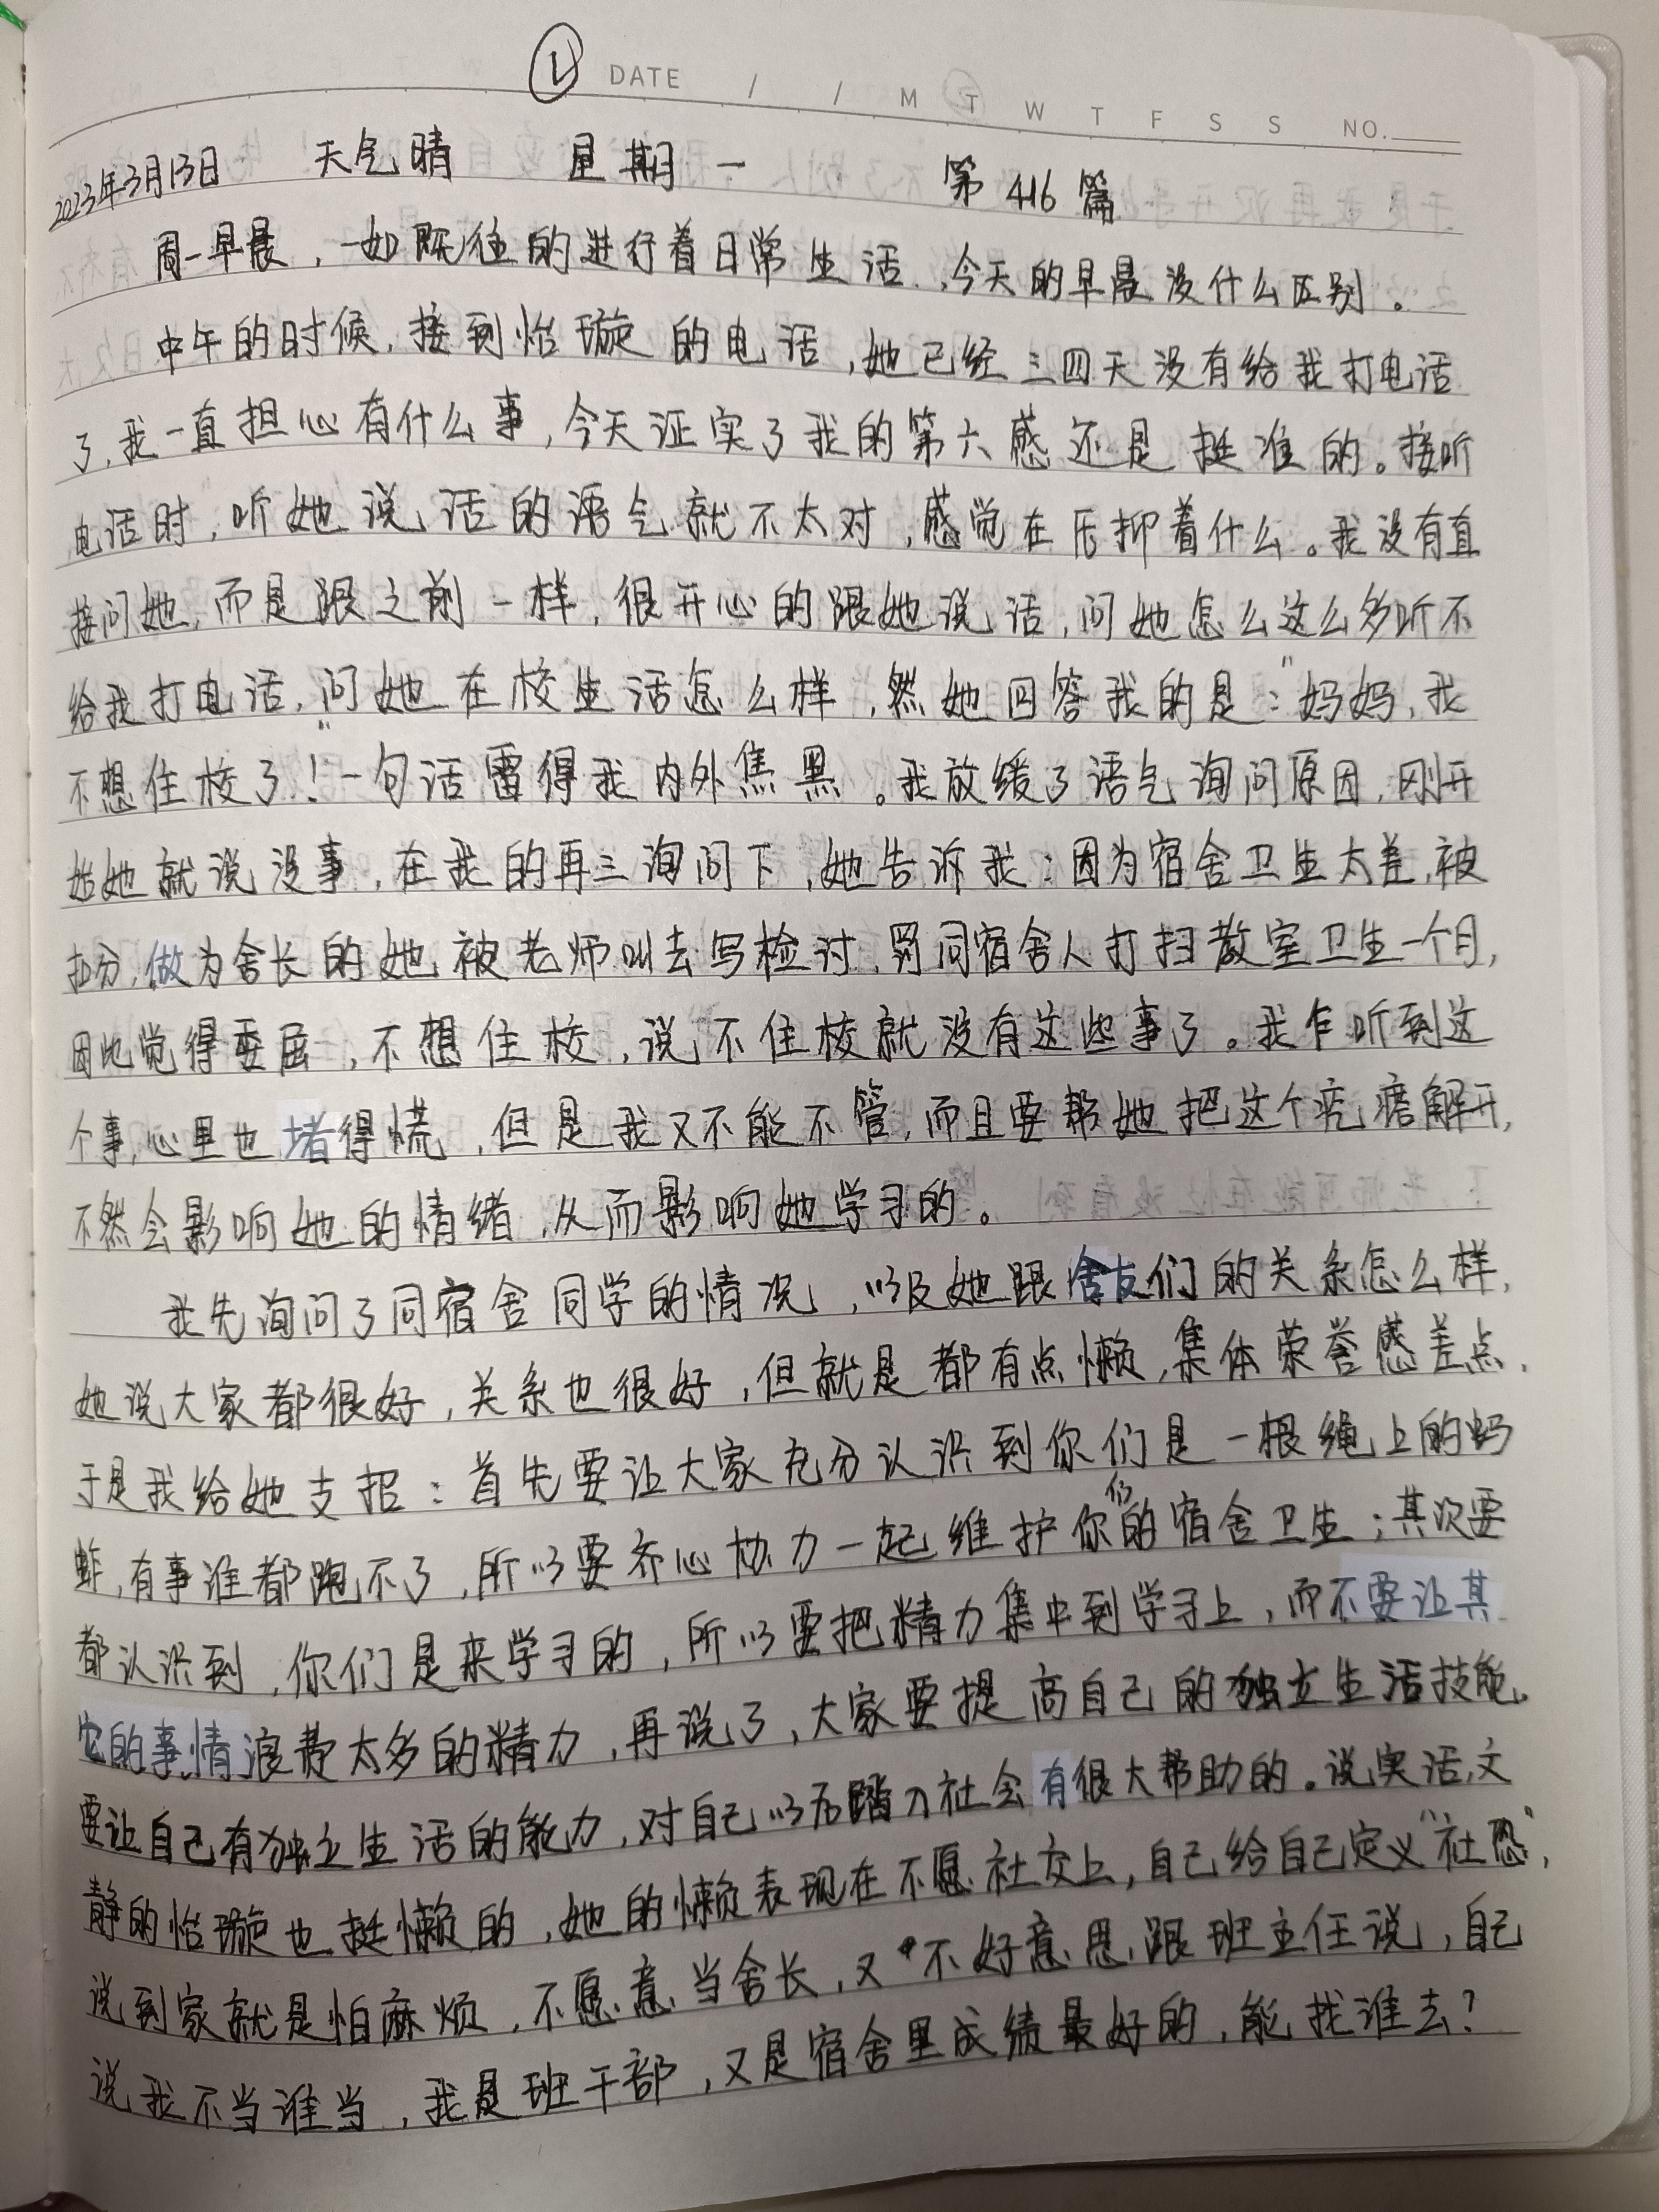 ① DATE / / M T W T F S S NO.
2023年3月13日 天气晴 星期一 第416篇
周一早晨，一如既往的进行着日常生活，今天的早晨没什么区别。
中午的时候，接到怡璇的电话，她已经三四天没有给我打电话
了，我一直担心有什么事，今天证实了我的第六感还是挺准的。接听
电话时，听她说话的语气就不太对，感觉在压抑着什么。我没有直
接问她，而是跟之前一样，很开心的跟她说话，问她怎么这么多听不
给我打电话，问她在校生活怎么样，然她回答我的是："妈妈，我
不想住校了！"一句话雷得我内外焦黑。我放缓了语气询问原因，刚开
始她就说没事，在我的再三询问下，她告诉我：因为宿舍卫生太差，被
扣分，做为舍长的她被老师叫去写检讨，罚同宿舍人打扫教室卫生一个月，
因此觉得委屈，不想住校，说不住校就没有这些事了。我乍听到这
个事，心里也堵得慌，但是我又不能不管，而且要帮她把这个疙瘩解开，
不然会影响她的情绪，从而影响她学习的。
我先询问了同宿舍同学的情况，以及她跟舍友们的关系怎么样，
她说大家都很好，关系也很好，但就是都有点懒，集体荣誉感差点，
于是我给她支招：首先要让大家充分认识到你们是一根绳上的蚂
蚱，有事谁都跑不了，所以要齐心协力一起维护你们的宿舍卫生；其次要
都认识到，你们是来学习的，所以要把精力集中到学习上，而不要让其
它的事情浪费太多的精力，再说了，大家要提高自己的独立生活技能，
要让自己有独立生活的能力，对自己以后踏入社会有很大帮助的。说实话，文
静的怡璇也挺懒的，她的懒表现在不愿社交上，自己给自己定义"社恐"，
说到家就是怕麻烦，不愿意当舍长，又不好意思跟班主任说，自己
说我不当谁当，我是班干部，又是宿舍里成绩最好的，能找谁去？